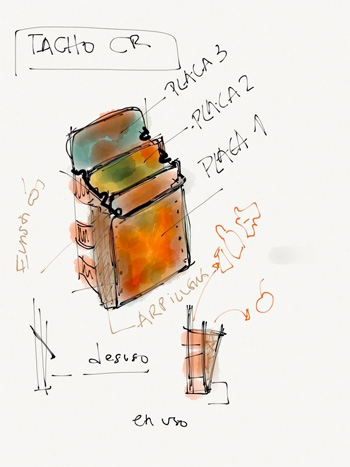 TACHO CR
PLACA 3
PLACA 2
PLACA 1
ARPILLERA
desuso
en uso